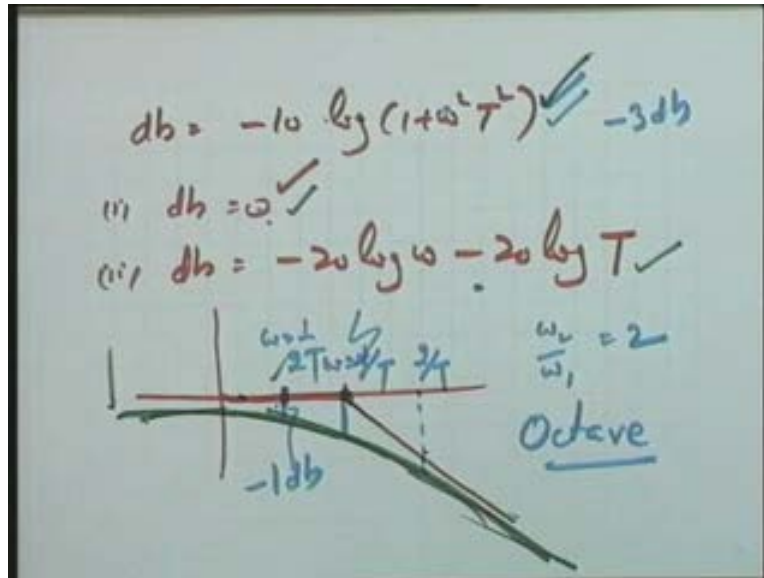 db = -10 log (1+ω²T²) -3db
(i) db = 0
(ii) db = -20 log ω - 20 log T
ω=1/2T ω=1/T 2/T
ω₂/ω₁ = 2
Octave
-1db